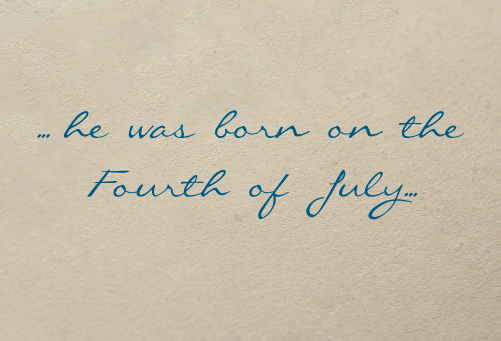 ... he was born on the
Fourth of July...